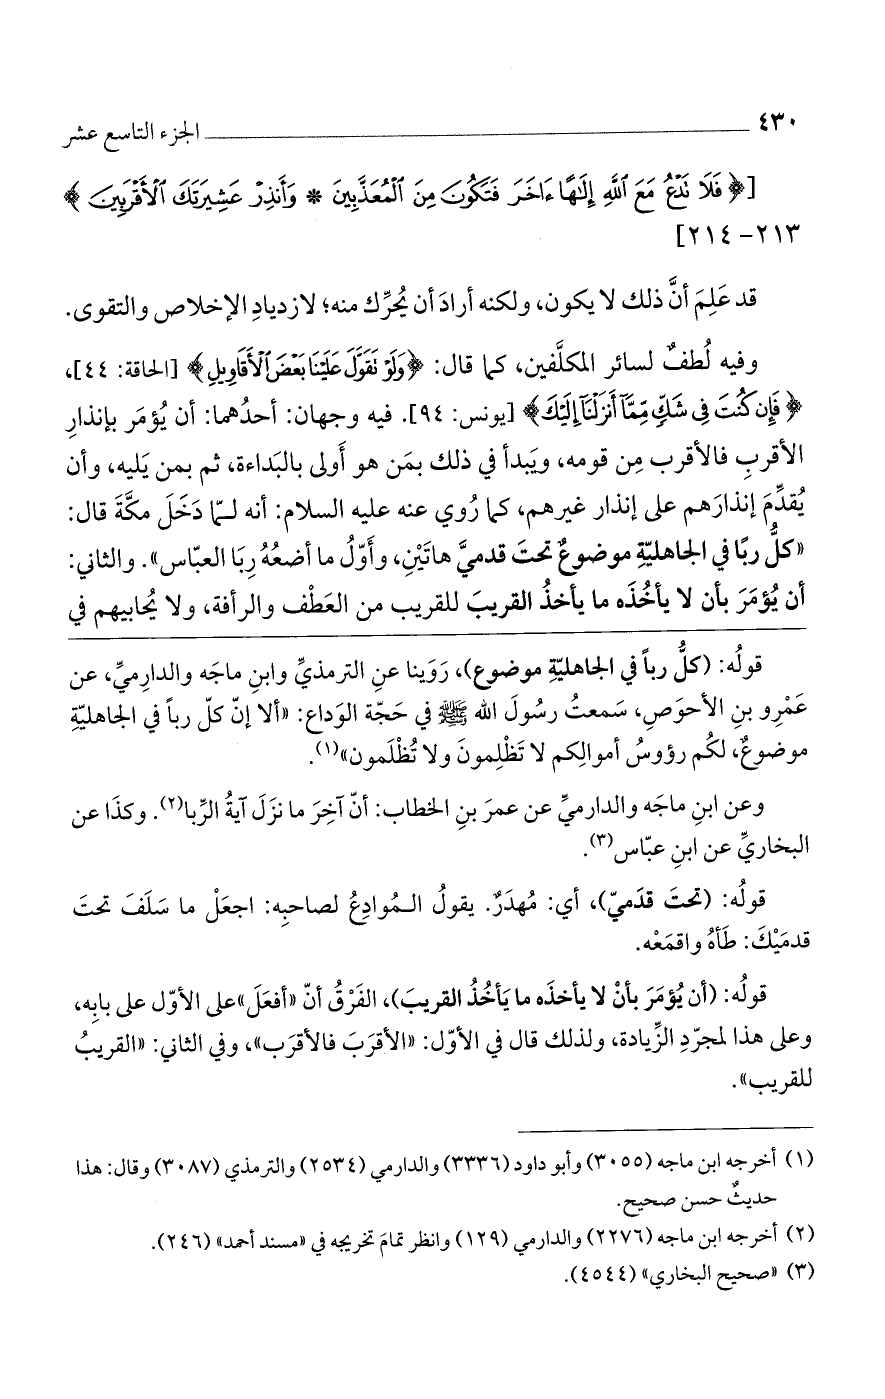 ٤٣٠ الجزء التاسع عشر
[﴿فَلَا نَدْعُ مَعَ ٱللَّهِ إِلَٰهًا ءَاخَرَ فَتَكُونَ مِنَ ٱلْمُعَذَّبِينَ * وَأَنذِرْ عَشِيرَتَكَ ٱلْأَقْرَبِينَ﴾
٢١٣-٢١٤]
قد عَلِمَ أنَّ ذلك لا يكون، ولكنه أرادَ أن يُحرِّك منه؛ لازديادِ الإخلاص والتقوى.
وفيه لُطفٌ لسائر المكلَّفين، كما قال: ﴿وَلَوْ نَقَوَّلَ عَلَيْنَا بَعْضَ ٱلْأَقَاوِيلِ﴾ [الحاقة: ٤٤]،
﴿فَإِن كُنتَ فِى شَكٍّ مِّمَّآ أَنزَلْنَآ إِلَيْكَ﴾ [يونس: ٩٤]. فيه وجهان: أحدُهما: أن يُؤمَر بإنذارِ
الأقربِ فالأقرب مِن قومه، ويَبدأ في ذلك بمَن هو أَولى بالبَداءة، ثم بمن يَليه، وأن
يُقدِّمَ إنذارَهم على إنذار غيرهم، كما رُوي عنه عليه السلام: أنه لـمّا دَخَلَ مكَّةَ قال:
«كلُّ ربًا في الجاهليّةِ موضوعٌ تحتَ قدميَّ هاتَيْنِ، وأَوّلُ ما أضعُهُ رِبَا العبّاس». والثاني:
أن يُؤمَرَ بأن لا يأخُذَه ما يأخذُ القريبَ للقريب من العَطْف والرأفة، ولا يُحابيهم في
قولُه: (كلُّ رباً في الجاهليّةِ موضوع)، رَوَينا عنِ الترمذيِّ وابنِ ماجَه والدارِميِّ، عن
عَمْرِو بنِ الأحوَصِ، سَمعتُ رسُولَ الله ﷺ في حَجّة الوَداع: «ألا إنّ كلّ رباً في الجاهليّةِ
موضوعٌ، لكُم رؤوسُ أموالِكم لا تَظْلِمونَ ولا تُظْلَمون»(١).
وعن ابنِ ماجَه والدارميِّ عن عمرَ بنِ الخطاب: أنّ آخِرَ ما نزَلَ آيةُ الرِّبا(٢). وكذَا عن
البخاريِّ عن ابنِ عبّاس(٣).
قولُه: (تحتَ قدَميّ)، أي: مُهدَرٌ. يقولُ الـمُوادِعُ لصاحبِه: اجعَلْ ما سَلَفَ تحتَ
قدمَيْكَ: طَأْهُ واقمَعْه.
قولُه: (أن يُؤمَرَ بأنْ لا يأخذَه ما يَأخُذُ القريبَ)، الفَرْقُ أنّ «أفعَلَ»على الأوّل على بابِه،
وعلى هذا لمجرّدِ الزِّيادة، ولذلك قال في الأوّل: «الأقرَبَ فالأقرَب»، وفي الثاني: «القريبُ
للقريب».
(١) أخرجه ابن ماجه (٣٠٥٥) وأبو داود (٣٣٣٦) والدارمي (٢٥٣٤) والترمذي (٣٠٨٧) وقال: هذا
حديثٌ حسن صحيح.
(٢) أخرجه ابن ماجه (٢٢٧٦) والدارمي (١٢٩) وانظر تمامَ تخريجه في «مسند أحمد» (٢٤٦).
(٣) «صحيح البخاري» (٤٥٤٤).